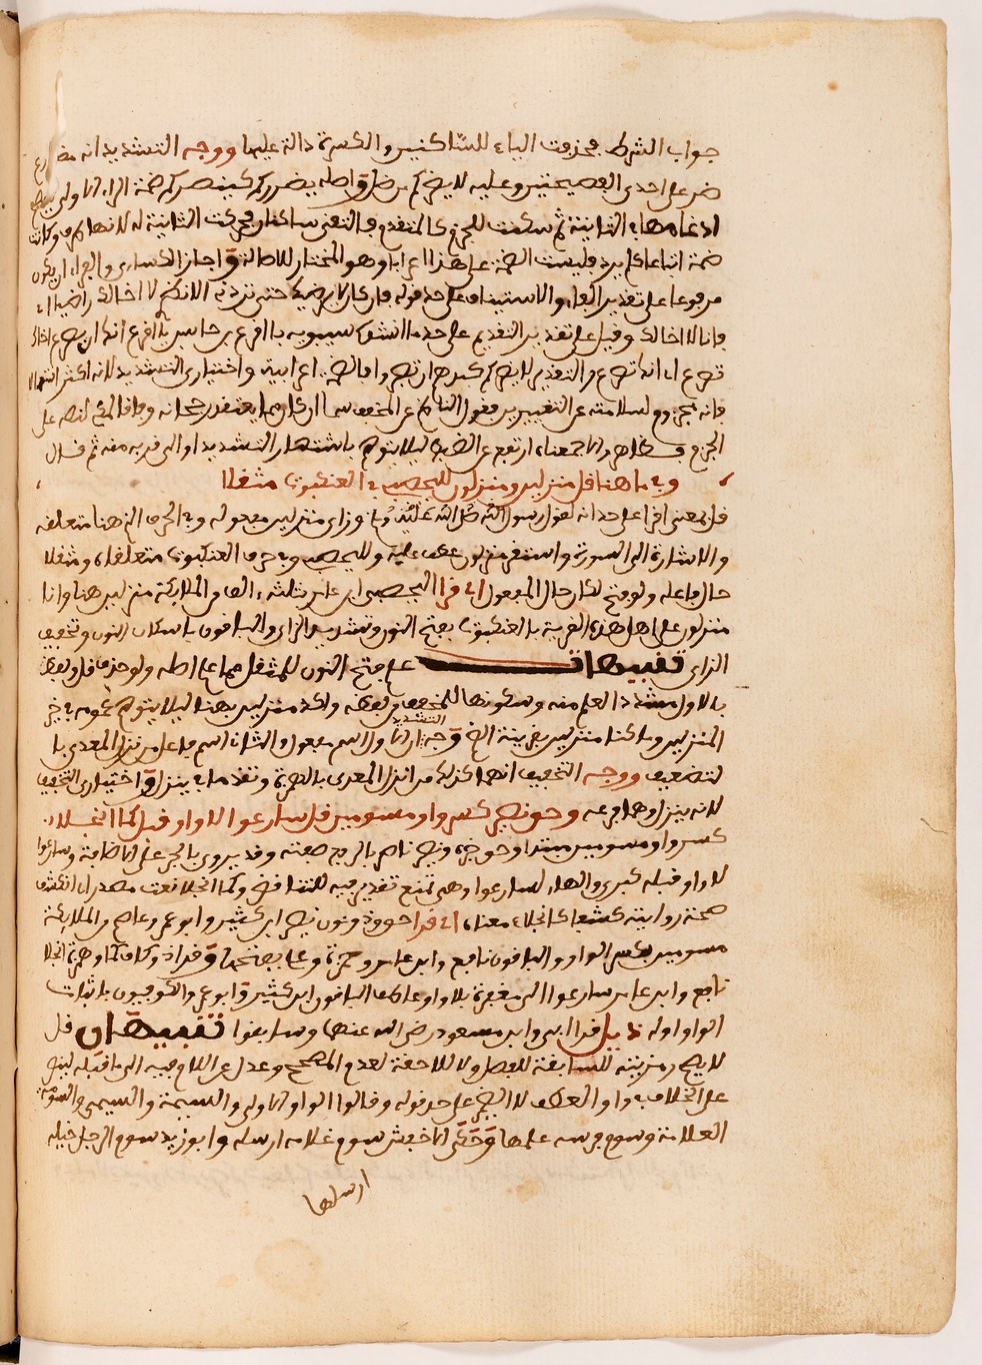 جواب الشرط فحذفت الياء للساكنين والكسرة دالة عليها ووجه التشديد انه مضارع
ضر على احدى الفصيحتين وعليه لا يضركم من ضل واصله يضرركم كينصركم نقلت ضمة الراء الاولى ليصح
ادغامها في الثانية ثم سكنت للجزم كالمتقدم فالتقى ساكنان فحركت الثانية له لانها طرف وكانت
ضمة اتباعا كلم يرد فليست الضمة على هذا اعرابا وهو المختار للاصالة واجاز الكسائي والفراء ان يكون
مرفوعا على تقدير الفاء والاستيناف على حد قوله فان كان لا يرضيك حتى تردني الا لا اخالك راضيا اي
فانا لا اخالك وقيل على تقدير التقديم على حد ما انشد سيبويه يا اقرع بن حابس يا اقرع انك ان يصرع اخوك
تصرع اي انك تصرع والتقدير لا يضركم كيدهم ان تصبروا فالضمة اعرابية واختياري التشديد لانه اكثر
فانه لسلامته عن التغيير
الجزم ارتفع عن ليلا يتوهم باشتهار التشديد اولى قربه منه ثم قال
وفيما هنا قل منزلين ومنزلون لليحصبي في العنكبوت مثقلا
قل بمعنى اقرا على حد انه لقول رسول وزاي منزلين مفعوله وفي الحرف الذي هنا متعلقه
والاشارة الى السورة ومنزلون عطف عليه ولليحصبي وفي حرف العنكبوت متعلقاه ومثقلا
حال فاعله ولو فتح لكان حال المفعول اي قرا اليحصبي ابن عامر بثلثة الاف من الملايكة منزلين هنا وانا
منزلون على اهل هذه القرية بالعنكبوت بفتح النون وتشديد الزاي والباقون باسكان النون وتخفيف
الزاي تنبيهات علم فتح النون للمثقل مما علم اصله ولو حذف قل ولفظ
بالاول مشددا لعلم منه وسكونها للمخفف من لفظه وقيد منزلين بهنا ليلا يتوهم عمومه في خير
المنزلين وما كنا منزلين بقرينة الضم وجه التشديد ان الاول اسم مفعول والثاني اسم فاعل من نزل المعدى با
لتضعيف ووجه التخفيف انهما كذلك من انزل المعدى بالهمزة وتقدما في ينزل واختياري التخفيف
لانه ينزل وهما فرعه وحق نصير كسر واو مسومين قل سارعوا لا واو قبل كما انجلا
كسر واو مسومين مبتدا وحق خبره ونصير تاصر بالرفع صفته وقد يروى بالجر على الاضافة وسارعوا
لا واو قبله كبرى والهاء لسارعوا وهي تمنع تقدير فيه للتناقض وكما انجلا نعت مصدر اي انكشف
صحة روايته كشفا كانجلاء معناه اي قرا ذو حا حق ونون نصير ابن كثير وابو عمرو وعاصم من الملايكة
مسومين بكسر الواو والباقون نافع وابن عامر وحمزة وعلي بفتحها وقرا ذو كاف كما وهمزة انجلا
نافع وابن عامر سارعوا الى مغفرة بلا واو عاطف الباقون ابن كثير وابو عمرو والكوفيون باثبات
الواو اوله ذيل قرا ابي وابن مسعود رضي الله عنهما وسابقوا تنبيهان قل
لا يصح رمزيته للسابقة للفصل ولا للاحقة لعدم المصحح وعدل عن اللام فيه الى ما قبله لينص
على الخلاف في واو العطف لا الضمير على حد قوله وقالوا الواو الاولى والسيمة والسيمى والسومة
العلامة وسوم فرسه علمها وحكى الاخفش سوم غلامه ارسله وابو زيد سوم الرجل خيله
ارسلها